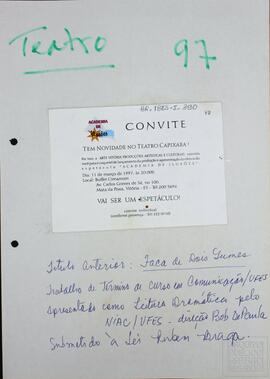 Teatro 97
ACADEMIA DE
CONVITE
TEM NOVIDADE NO TEATRO CAPIXABA!
Dia: 11 de março de 1997, às 20:00h.
Local: Buffet Cinnamon
Av. Carlos Gomes de Sá, no 100,
Mata da Praia, Vitória - ES
VAI SER UM ESPETÁCULO!
convite individual
Título Anterior: Faca de Dois Gumes
Trabalho de Término de Curso em Comunicação/UFES
apresentado como Leitura Dramática pelo
NIAC/UFES - direção Bob DePaula
Submetido à Lei Rubem Braga.